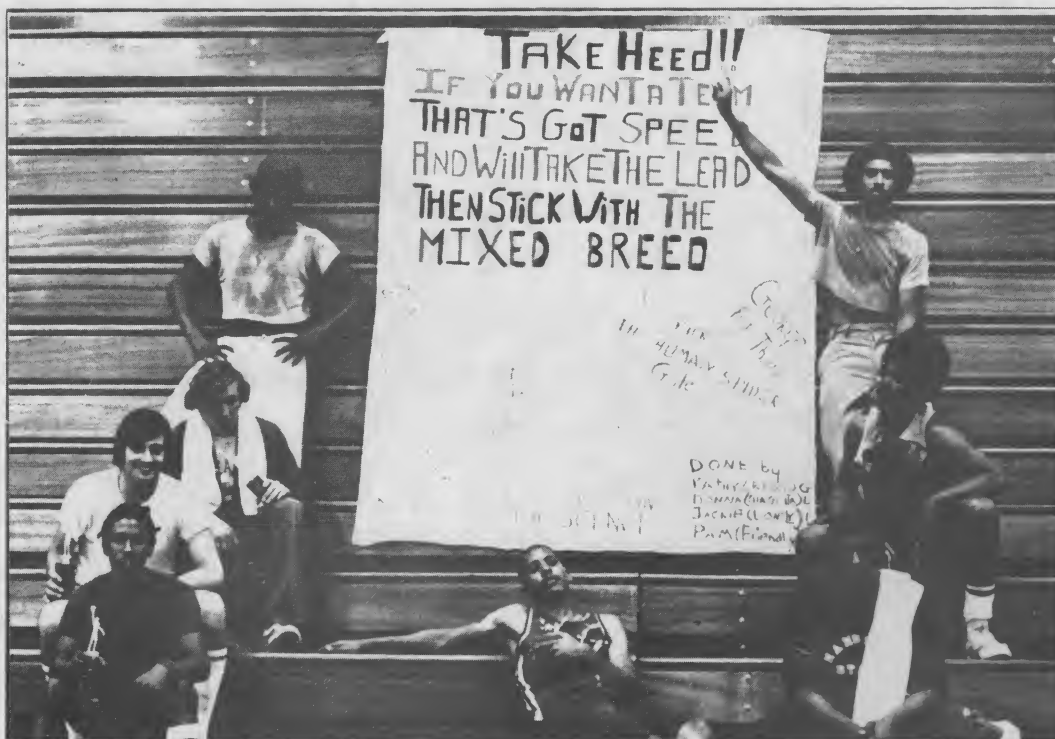 TAKE HEED!!
IF YOU WANT A TEAM
THAT'S GOT SPEED
AND WILL TAKE THE LEAD
THEN STICK WITH THE
MIXED BREED
THE HUMAN SPIDER
DONE by
DONNA
JACKIE
PAM (Friendly